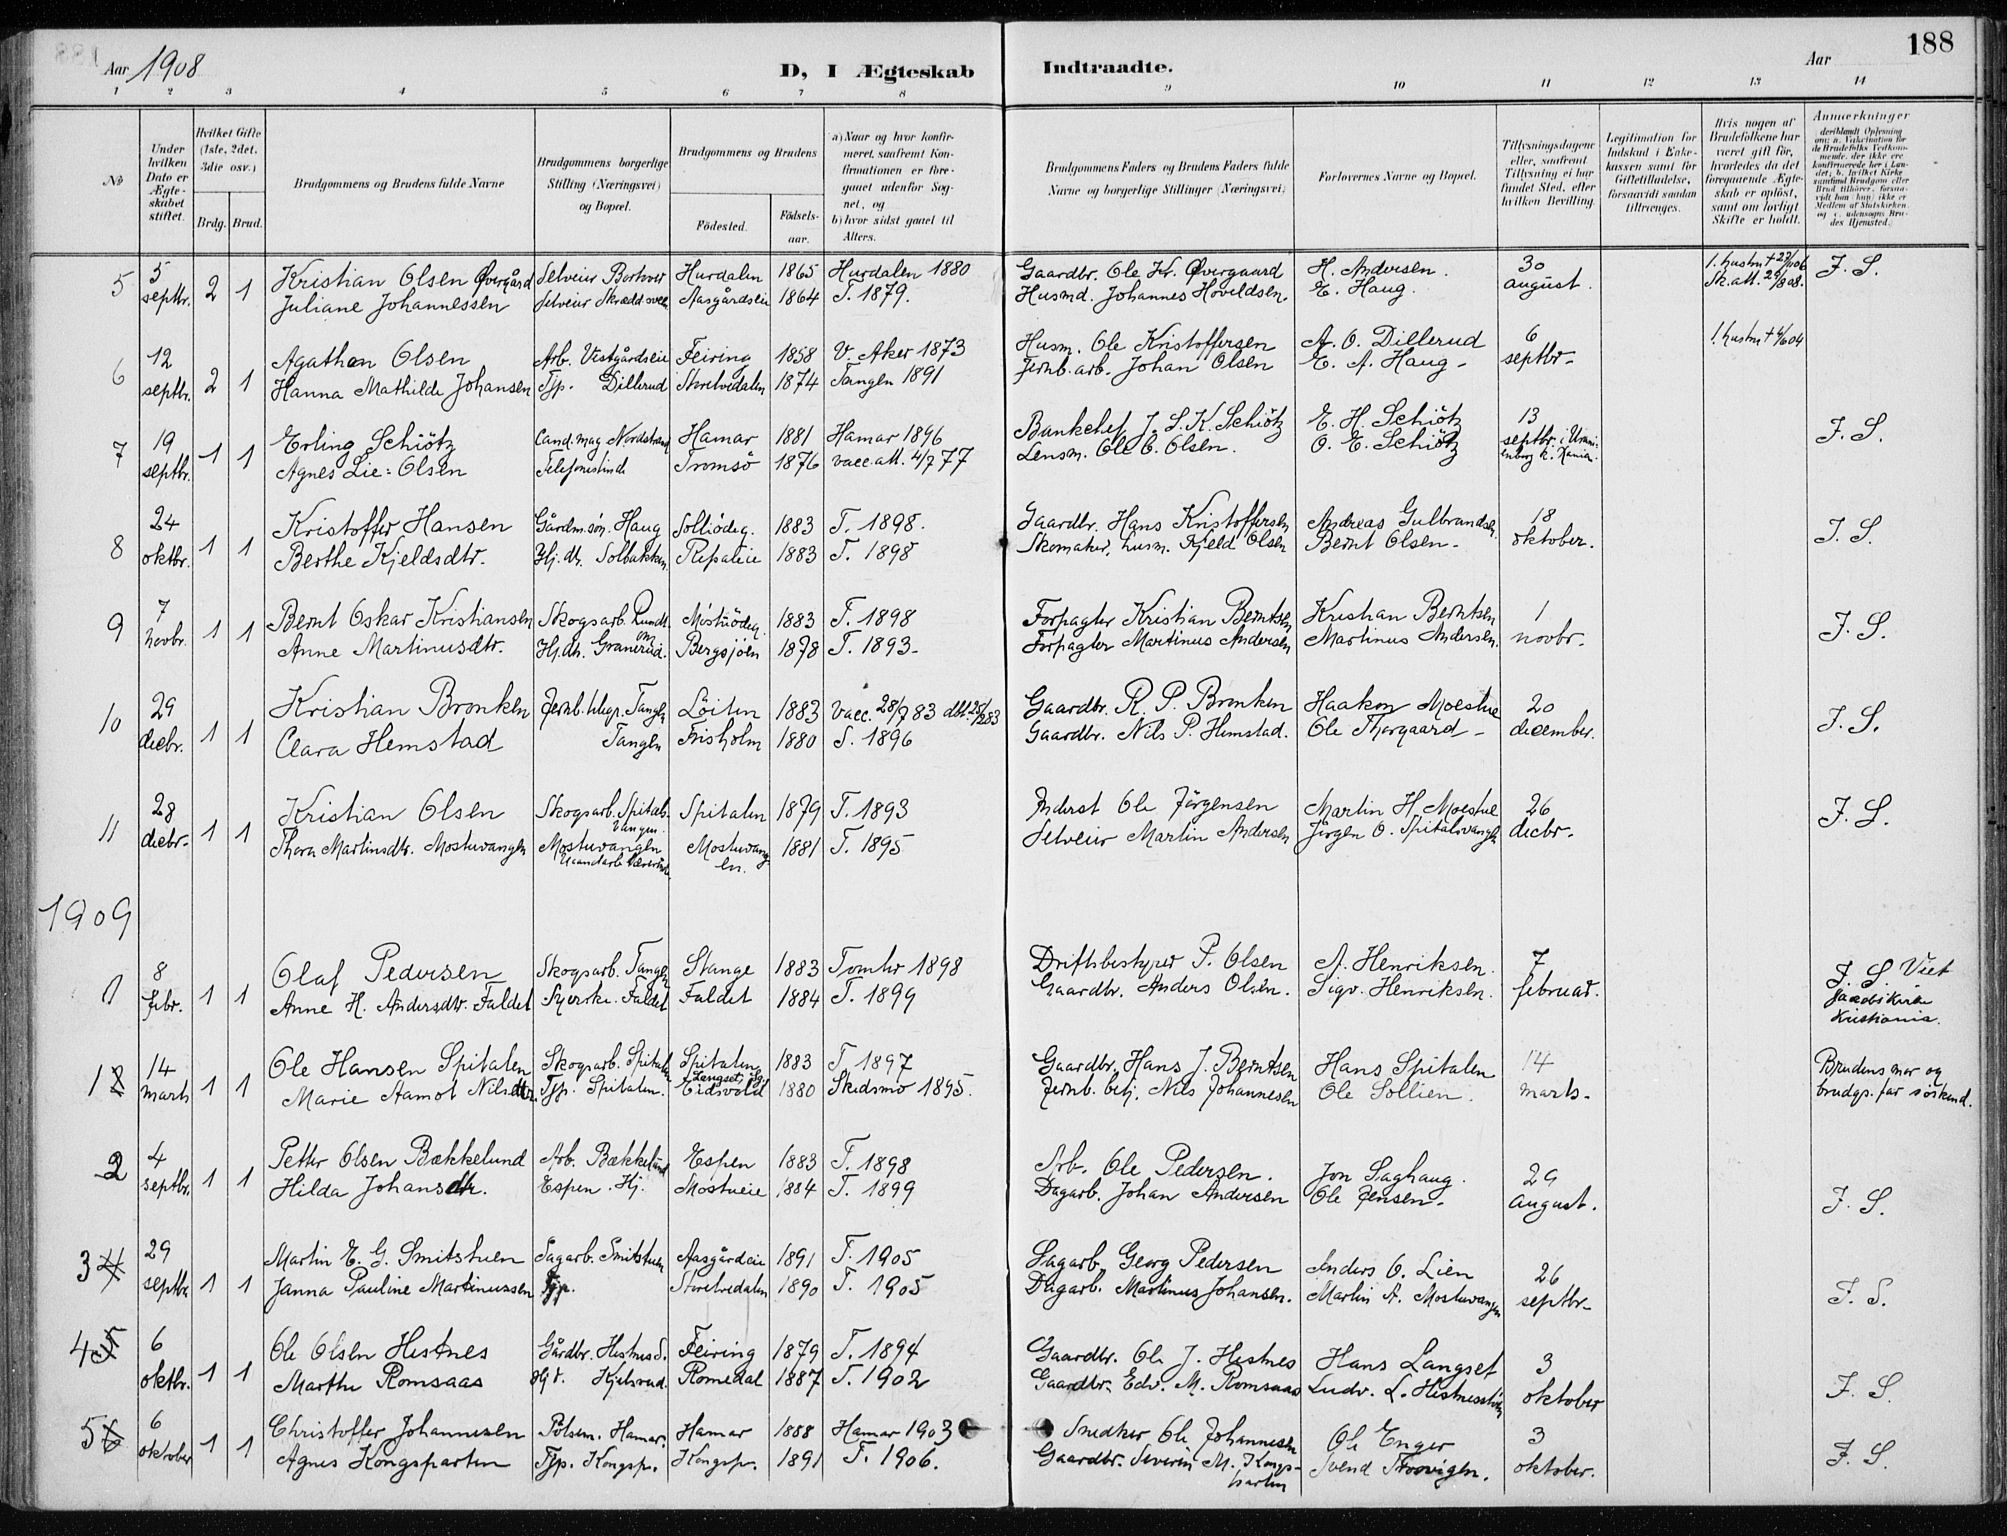 Aar 1908
D, I Ægteskab
Indtraadte.
Aar
188
1 2 3 4 5 6 7 8 9 10 11 12 13 14
No
Under hvilken Dato er Ægteskabet stiftet.
Hvilket Gifte (1ste, 2det. 3die osv.)
Brdg. Brud.
Brudgommens og Brudens fulde Navne
Brudgommens borgerlige Stilling (Næringsvei) og Bopæl.
Brudgommens og Brudens
Fødested.
Fødselsaar.
a) Naar og hvor konfirmeret, saafremt Konfirmationen er foregaaet udenfor Sognet, og
b) hvor sidst gaaet til Alters.
Brudgommens Faders og Brudens Faders fulde Navne og borgerlige Stillinger (Næringsvei)
Forlovernes Navne og Bopæl.
Tillysningsdagene eller, saafremt Tillysning ei har fundet Sted, efter hvilken Bevilling.
Legitimation for Indskud i Enkekassen samt for Giftetilladelse, forsaavidt saadan tiltrænges.
Hvis nogen af Brudefolkene har været gift før, hvorledes da det foregaaende Ægteskab er opløst, samt om lovligt Skifte er holdt.
Anmærkninger
5 5 septbr. 2 1 Kristian Olsen Øvergård Selveier Hurdalen 1865 Hurdalen 1880 Gaardbr. Ole Kr. Øvergaard H. Andersen. 30 august. J. S.
Juliane Johannessen Aasgårdseie 1864 T. 1879. Husmd. Johannes Hoveldsen. E. Haug.
6 12 septbr. 2 1 Agathon Olsen Arb. Vestgårdseie Feiring 1858 V. Aker 1873 Husm. Ole Kristoffersen A. O. Dillerud 6 septbr-
Hanna Mathilde Johansen Tjp. Dillerud Storelvedalen 1874 Tangen 1891 Jernb. arb. Johan Olsen E. A. Haug-
7 19 septbr. 1 1 Erling Schiötz Cand. mag Nordstrand Hamar 1881 Hamar 1896 Bankchef J. S. K. Schiötz E. H. Schiötz 13 septbr. i J. S.
Agnes Lie=Olsen Telefonistinde Tromsö 1876 vacc. att. 4/7 77 Lensm. Ole E. Olsen. O. E. Schiötz
8 24 oktbr. 1 1 Kristoffer Hansen Gårdm.søn. Haug 1883 T. 1898. Gaardbr. Hans Kristoffersen Andreas Gulbrandsen 18 oktober. J. S.
Berthe Kjeldsdtr. Hj. dtr. Solbakken 1883 T. 1898 Skomaker, husm. Kjeld Olsen Bernt Olsen-
9 7 novbr. 1 1 Bernt Oskar Kristiansen Skogsarb. 1883 T. 1898 Forpagter Kristian Berntsen Kristian Berntsen 1 novbr- J. S.
Anne Martinusdtr. Hj. dtr. Granerud. Bergsjöen 1878 T. 1893- Forpagter Martinus Andersen Martinus Andersen.
10 29 decbr. 1 1 Kristian Bronken Jernb. telegr. Tangen Löiten 1883 Vacc. 28/9 83 Gaardbr. R. P. Bronken Haakon Moestue 20 december. J. S.
Clara Hemstad Tangen Frisholm 1880 S. 1896 Gaardbr. Nils P. Hemstad. Ole Thorgaard-
11 28 decbr- 1 1 Kristian Olsen Skogsarb. Spitalsvangen Spitalen 1879 T. 1893 Inderst Ole Jörgensen Martin H. Moestue 26 decbr- J. S.
Thora Martinsdtr. Mostuvangen Mostuvangen Mostuvangen. 1881 T. 1895 Selveier Martin Andersen Jörgen O. Spitalsvangen
1909
1 8 febr. 1 1 Olaf Pedersen Skogsarb. Tangen Stange 1883 Tomter 1898 Driftsbestyrer P. Olsen A. Henriksen. 7 februar. J. S. Viet
Anne H. Andersdtr. Faldet Syerske. Faldet Faldet 1884 T. 1899 Gaardbr. Anders Olsen. Sigv. Henriksen. Jacobs kirke Kristiania.
12 14 marts 1 1 Ole Hansen Spitalen Skogsarb. Spitalen Spitalen 1883 T 1897 Gaardbr. Hans J. Berntsen Hans Spitalen 14 marts- Brudens mor og brudgs. far søskend.
Marie Aamot Nilsdtr. Tjp. Spitalen. Eidsvold 1880 Skedsmo 1895. Jernb. betj. Nils Johannesen Ole Sollien.
2 4 septbr. 1 1 Petter Olsen Bækkelund Arb. Bækkelund Espen 1883 T. 1898 Arb. Ole Pedersen. Jon Saghaug. 29 august. J. S.
Hilda Johansdtr. Espen. Hj. Mostueie 1884 T. 1899 Dagarb. Johan Andersen Ole Jensen-
3 4 29 septbr. 1 1 Martin E. G. Smitstuen Sagarb. Smitstuen Aasgårdeie 1891 T. 1905 Sagarb. Georg Pedersen Anders O. Lien 26 septbr- J. S.
Janna Pauline Martinussen Tjp. Storelvedalen 1890 T. 1905 Dagarb. Martinus Johansen. Martin A. Mostuvangen
4 5 6 oktbr. 1 1 Ole Olsen Hestnes Gårdbr. Hestnes S. Feiring 1879 T. 1894 Gaardbr. Ole J. Hestnes Hans Langset 3 oktober J. S.
Marthe Romsaas Kjelsrud. Romedal 1887 T. 1902 Gaardbr. Edv. M. Romsaas Ludv. L.
5 6 6 oktober 1 1 Christoffer Johannesen Pølsem. Hamar. Hamar 1888 Hamar 1903 Snedker Ole Johannesen Ole Enger 3 oktober. J. S.
Agnes Kongsparten Tjp. Kongsp. Kongsp. 1891 T. 1906. Gaardbr. Severin M. Kongsparten Svend